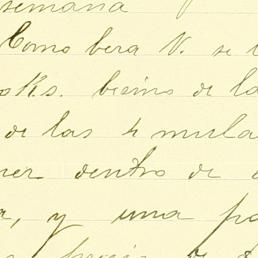 semana
Como bera V. se
oks. bieino de la
de las 4 mula
ner dentro de
a, y una pa